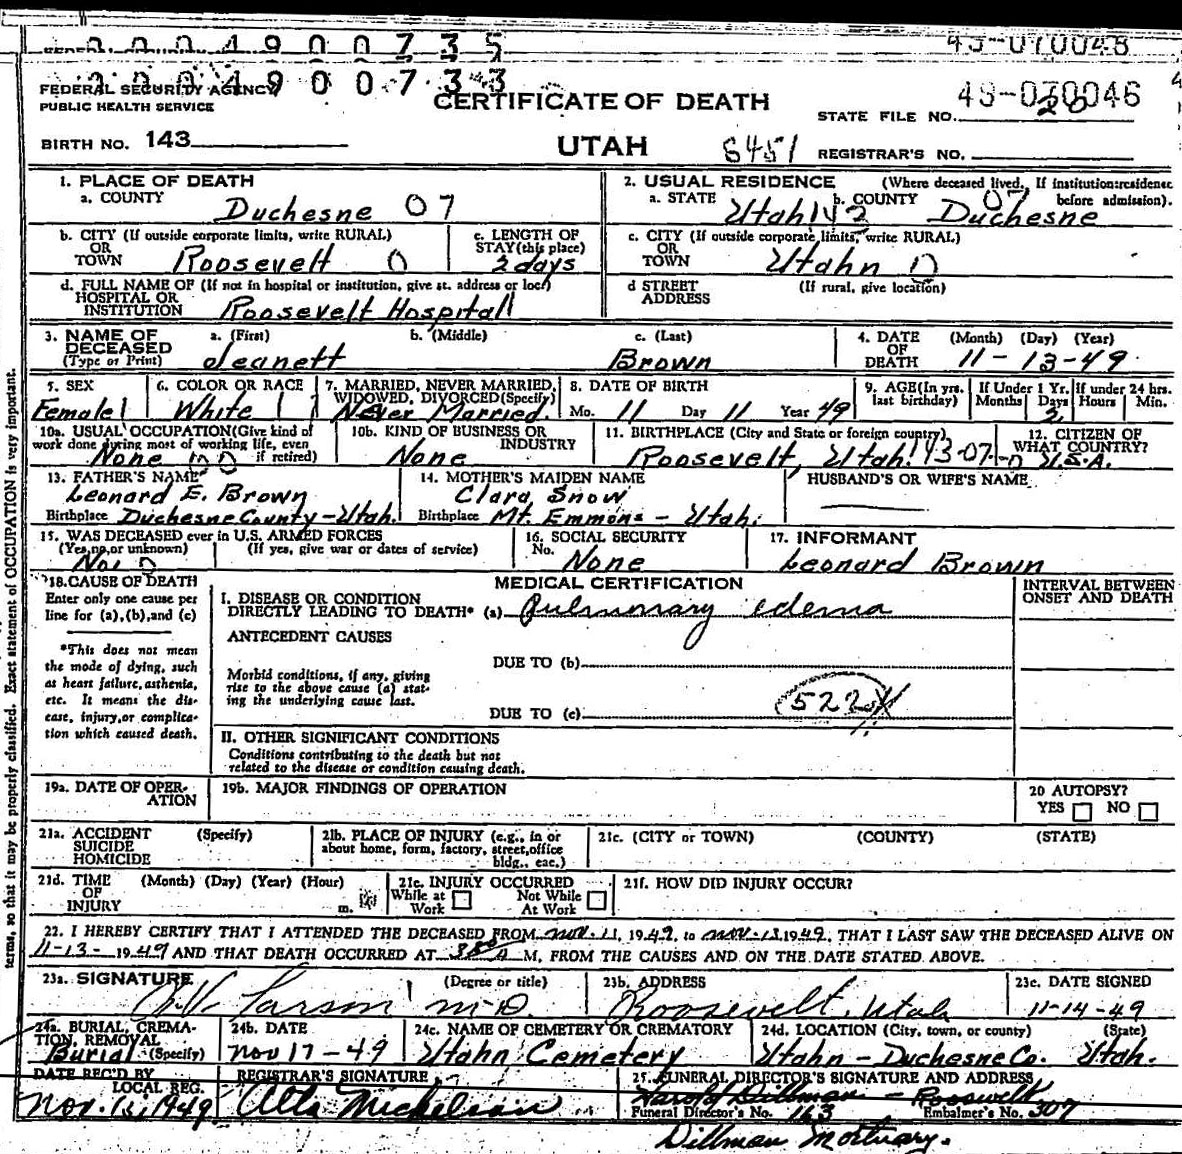 2004900735
43-070048
2004900733
FEDERAL SECURITY AGENCY
PUBLIC HEALTH SERVICE
CERTIFICATE OF DEATH
49-070046
STATE FILE NO. 20
BIRTH NO. 143
UTAH
6451
REGISTRAR'S NO.
1. PLACE OF DEATH
a. COUNTY
Duchesne 07
2. USUAL RESIDENCE (Where deceased lived. If institution: residence before admission).
a. STATE Utah 43 b. COUNTY 07 Duchesne
b. CITY (If outside corporate limits, write RURAL)
OR
TOWN Roosevelt 0
c. LENGTH OF
STAY (this place)
2 days
c. CITY (If outside corporate limits, write RURAL)
OR
TOWN Utahn 0
d. FULL NAME OF (If not in hospital or institution, give st. address or loc.)
HOSPITAL OR
INSTITUTION Roosevelt Hospital
d STREET (If rural, give location)
ADDRESS
3. NAME OF DECEASED (Type or Print)
a. (First) b. (Middle) c. (Last)
Jeanett Brown
4. DATE OF DEATH (Month) (Day) (Year)
11-13-49
5. SEX
Female 1
6. COLOR OR RACE
White 1
7. MARRIED, NEVER MARRIED,
WIDOWED, DIVORCED (Specify)
Never Married. 1
8. DATE OF BIRTH
Mo. 11 Day 11 Year 49
9. AGE (In yrs. last birthday)
If Under 1 Yr. Months Days
2
If under 24 hrs. Hours Min.
10a. USUAL OCCUPATION (Give kind of
work done during most of working life, even
if retired)
None
10b. KIND OF BUSINESS OR
INDUSTRY
None
11. BIRTHPLACE (City and State or foreign country)
Roosevelt, Utah. 43-07-0
12. CITIZEN OF
WHAT COUNTRY?
U.S.A.
13. FATHER'S NAME
Leonard E. Brown
Birthplace Duchesne County - Utah.
14. MOTHER'S MAIDEN NAME
Clara Snow
Birthplace Mt. Emmons - Utah.
HUSBAND'S OR WIFE'S NAME
15. WAS DECEASED ever in U.S. ARMED FORCES
(Yes, no, or unknown) (If yes, give war or dates of service)
No. 0
16. SOCIAL SECURITY
No. None
17. INFORMANT
Leonard Brown
18. CAUSE OF DEATH
Enter only one cause per
line for (a), (b), and (c)
*This does not mean
the mode of dying, such
as heart failure, asthenia,
etc. It means the dis-
ease, injury, or complica-
tion which caused death.
MEDICAL CERTIFICATION
I. DISEASE OR CONDITION
DIRECTLY LEADING TO DEATH* (a) Pulmonary edema
ANTECEDENT CAUSES
DUE TO (b)
Morbid conditions, if any, giving
rise to the above cause (a) stat-
ing the underlying cause last.
DUE TO (c)
522X
II. OTHER SIGNIFICANT CONDITIONS
Conditions contributing to the death but not
related to the disease or condition causing death.
INTERVAL BETWEEN
ONSET AND DEATH
19a. DATE OF OPER-
ATION
19b. MAJOR FINDINGS OF OPERATION
20 AUTOPSY?
YES NO
21a. ACCIDENT (Specify)
SUICIDE
HOMICIDE
21b. PLACE OF INJURY (e.g., in or
about home, form, factory, street, office
bldg., eac.)
21c. (CITY or TOWN) (COUNTY) (STATE)
21d. TIME (Month) (Day) (Year) (Hour)
OF
INJURY m.
21e. INJURY OCCURRED
While at Work Not While At Work
21f. HOW DID INJURY OCCUR?
22. I HEREBY CERTIFY THAT I ATTENDED THE DECEASED FROM Nov. 11, 1949, to Nov-13, 1949, THAT I LAST SAW THE DECEASED ALIVE ON
11-13- 1949 AND THAT DEATH OCCURRED AT 350 A M, FROM THE CAUSES AND ON THE DATE STATED ABOVE.
23a. SIGNATURE (Degree or title)
Larson M.D.
23b. ADDRESS
Roosevelt, Utah
23c. DATE SIGNED
11-14-49
24a. BURIAL, CREMA-
TION, REMOVAL
Burial (Specify)
24b. DATE
Nov 17-49
24c. NAME OF CEMETERY OR CREMATORY
Utahn Cemetery
24d. LOCATION (City, town, or county) (State)
Utahn - Duchesne Co. Utah.
DATE REC'D BY
LOCAL REG.
Nov. 15, 1949
REGISTRAR'S SIGNATURE
Alta Mickelson
25. FUNERAL DIRECTOR'S SIGNATURE AND ADDRESS
Harold Dillman - Roosevelt
Funeral Director's No. 163 Embalmer's No. 307
Dillman Mortuary.
terms, so that it may be properly classified. Exact statement of OCCUPATION is very important.